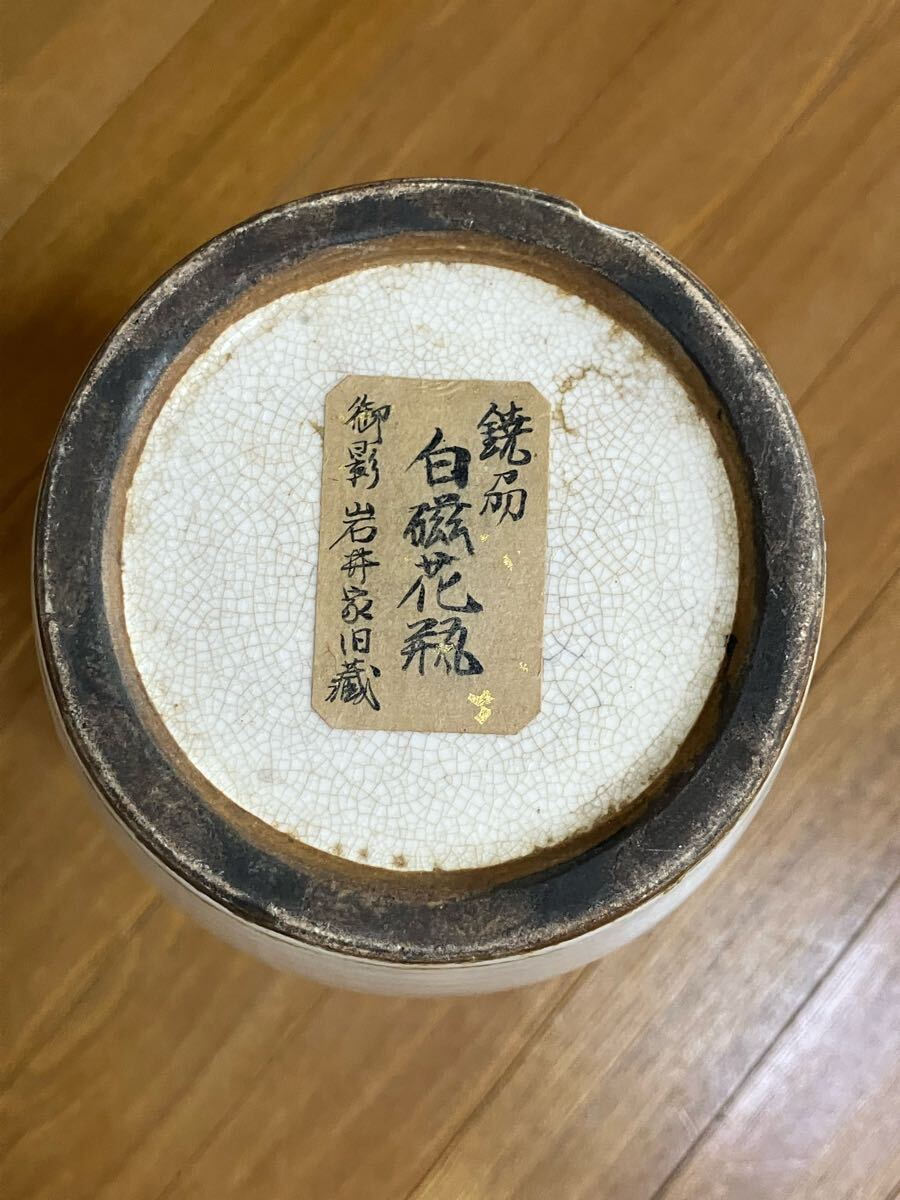 鐃刕
白磁花瓶
御影 岩井家旧蔵